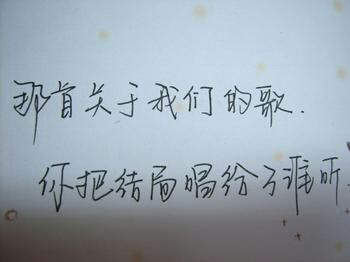 那首关于我们的歌.
你把结局唱给了谁听